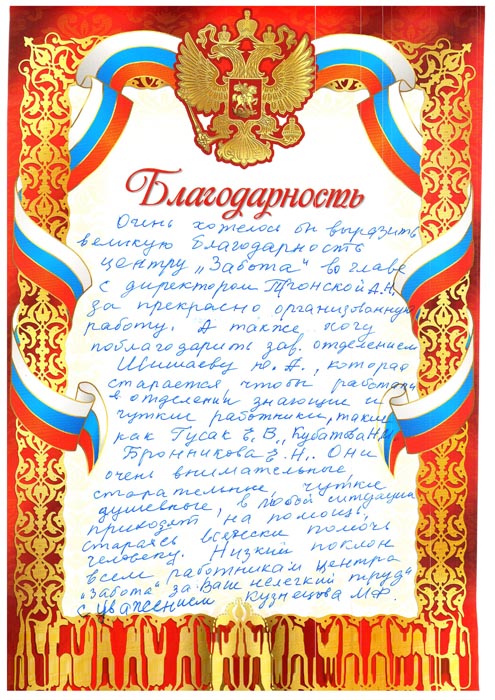 Благодарность
Очень хотелось бы выразить
великую благодарность
центру „Забота“ во главе
с директором Тронской А.Н.
за прекрасно организованную
работу. А также хочу
поблагодарить зав. отделением
Шишаеву Ю.А., которая
старается чтобы работали
в отделении знающие и
чуткие работники, такие
как Гусак Е.В., Кубатова Н.И.
Бронникова Е.Н.. Они
очень внимательные,
старательные, чуткие,
душевные, в любой ситуации
приходят на помощь,
стараясь всячески помочь
человеку. Низкий поклон
всем работникам центра
„Забота“ за Ваш нелегкий труд.
С уважением Кузнецова М.Ф.